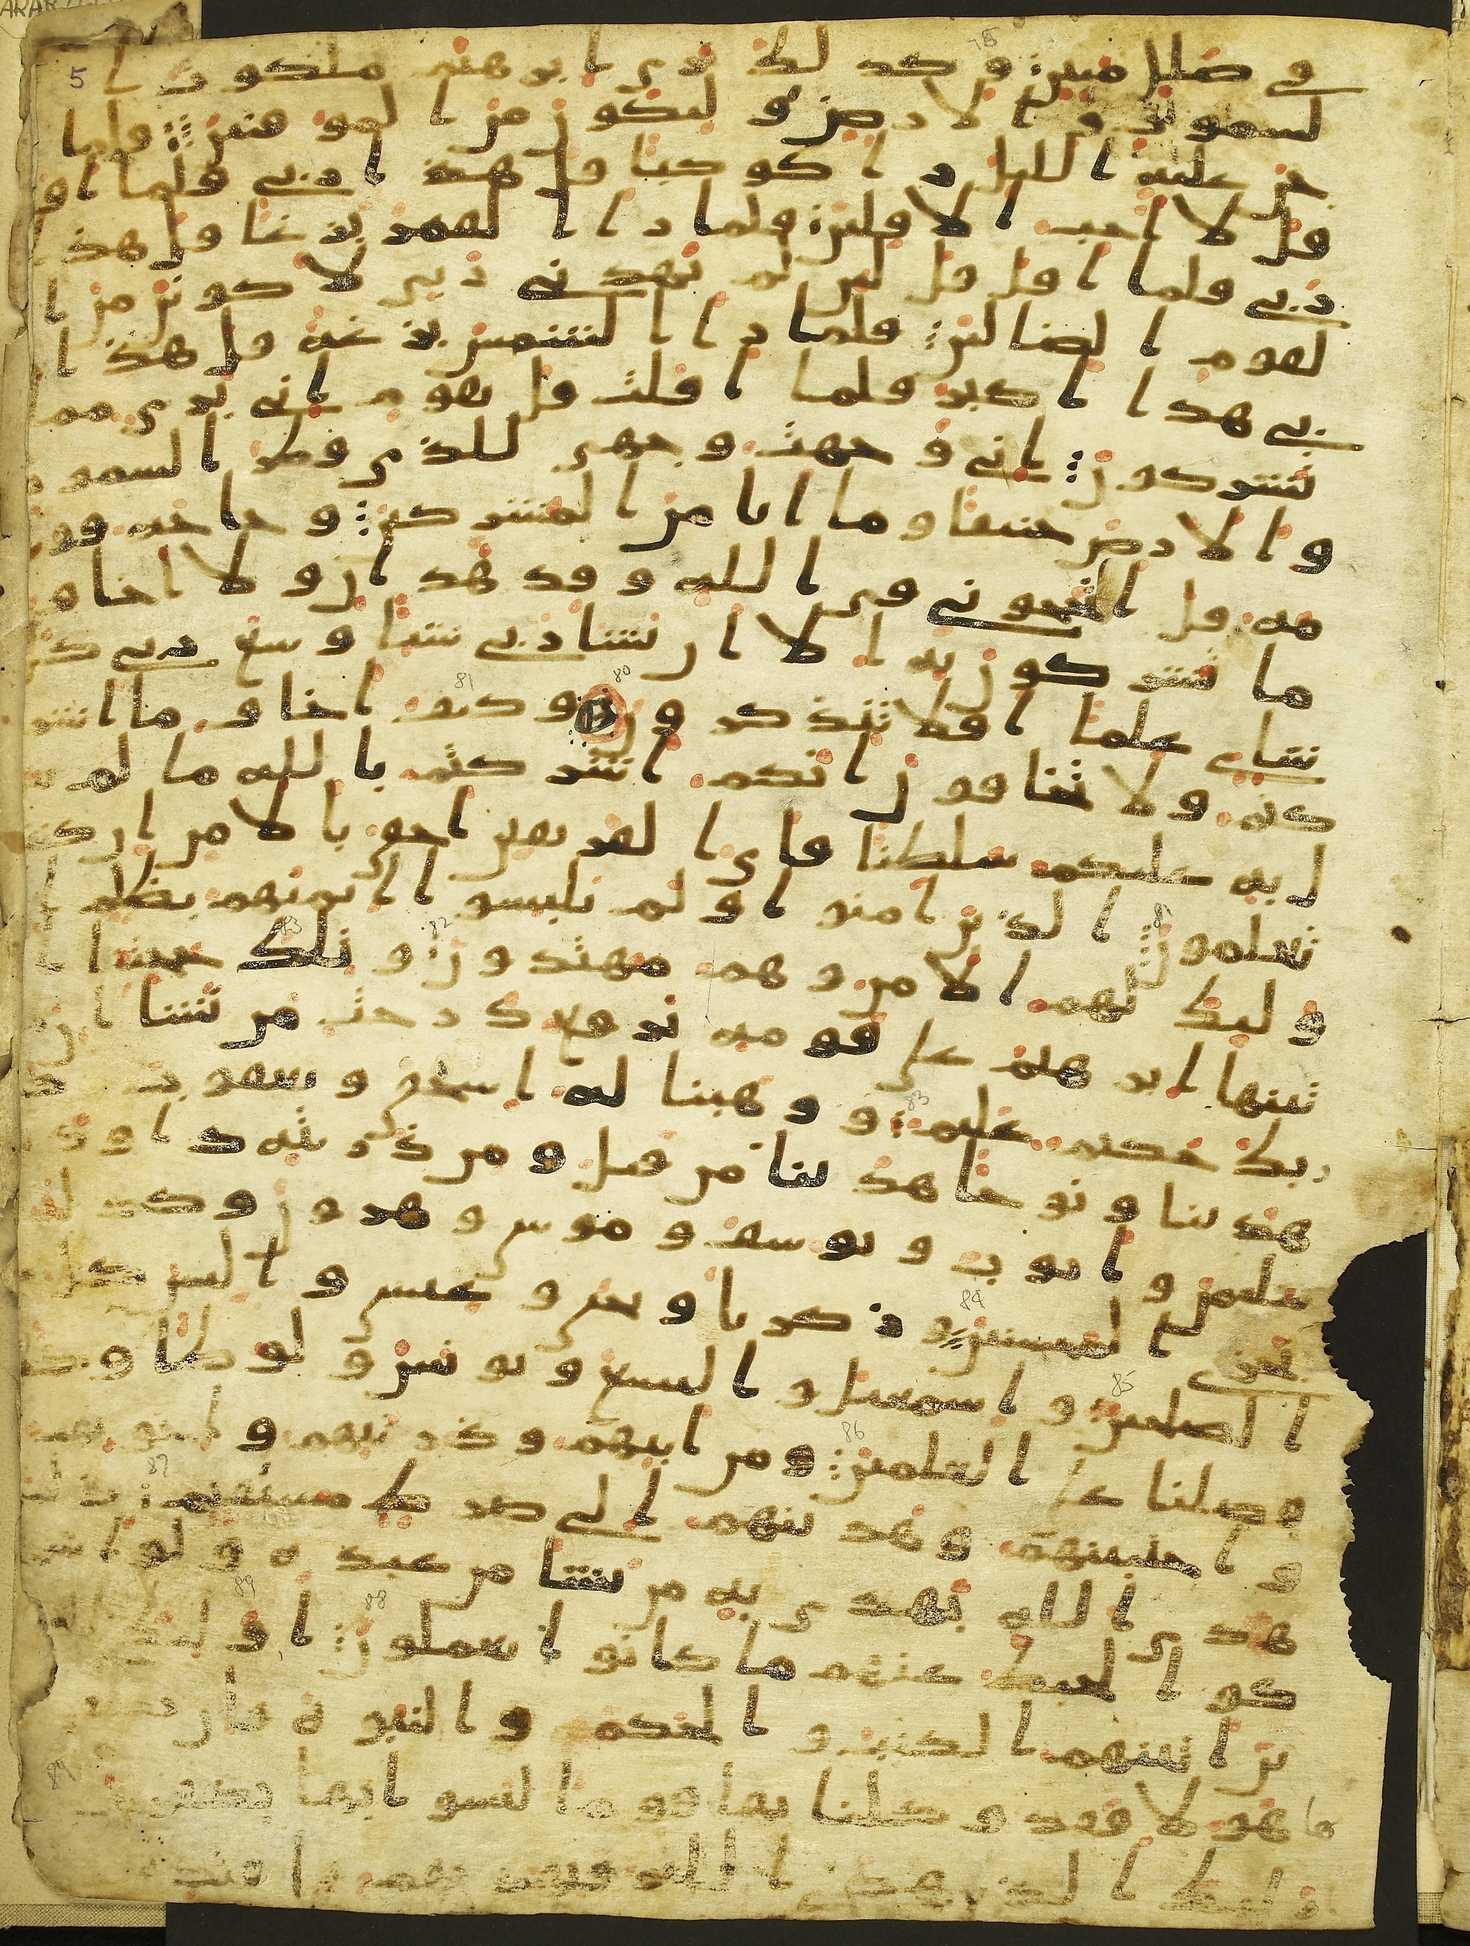 في ضلل مبين وكذلك نري ابرهيم ملكوت ا
لسموت والارض وليكون من الموقنين فلما
جن عليه اليل را كوكبا قل هذا ربي فلما افل
قل لا احب الافلين فلما را القمر بزغا قل هذا
ربي فلما افل قل لئن لم يهدني ربي لاكونن من ا
لقوم الضالين فلما را الشمس بزغه قل هذا ر
بي هذا اكبر فلما افلت قل يقوم اني بري مما
تشركون اني وجهت وجهي للذي فطر السموت
والارض حنيفا وما انا من المشركين وحاجه قو
مه قل اتحجوني في الله وقد هدان ولا اخاف
ما تشركون به الا ان يشا ربي شيا وسع ربي كل
شاي علما افلا تتذكرون وكيف اخاف ما اشر
كتم ولا تخافون انكم اشركتم بالله ما لم ينز
ل به عليكم سلطنا فاي الفريقين احق بالامن ان كنتم
تعلمون الذين امنوا ولم يلبسوا ايمنهم بظلم ا
وليك لهم الامن وهم مهتدون وتلك حجتنا ا
تينها ابرهيم على قومه نرفع درجت من نشا ان
ربك حكيم عليم ووهبنا له اسحق ويعقوب كلا
هدينا ونوحا هدينا من قبل ومن ذريته داود و
سليمن وايوب ويوسف وموسى وهرون وكذلك
نجزي المحسنين وذكريا ويحيى وعيسى والياس كل من
الصلحين واسمعيل واليسع ويونس ولوطا وكلا
فضلنا على العلمين ومن ابيهم وذريتهم واخونهم
واجتبينهم وهدينهم الي صرط مستقيم ذلك
هدى الله يهدي به من يشا من عبده ولو اشر
كوا لحبط عنهم ما كانوا يعملون اوليك الذ
ين اتينهم الكتب والحكم والنبوه فان يكفر
بها هولا فقد وكلنا بها قوما ليسوا بها بكفرين
اوليك الذين هدى الله فبهديهم اقتده
5
75
80
81
82
83
83
84
85
86
87
88
89
89